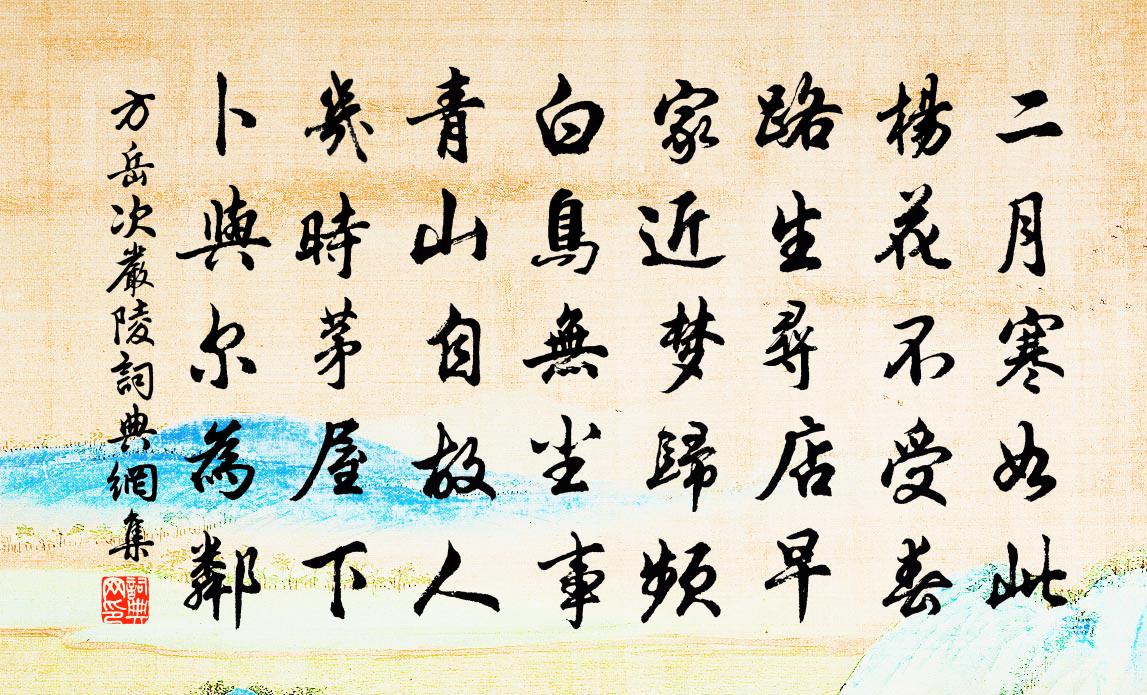 二月寒如此
楊花不受春
路生尋店早
家近梦歸頻
白鳥無尘事
青山自故人
幾時茅屋下
卜與尔為鄰
方岳次嚴陵詞典網集
詞典网印